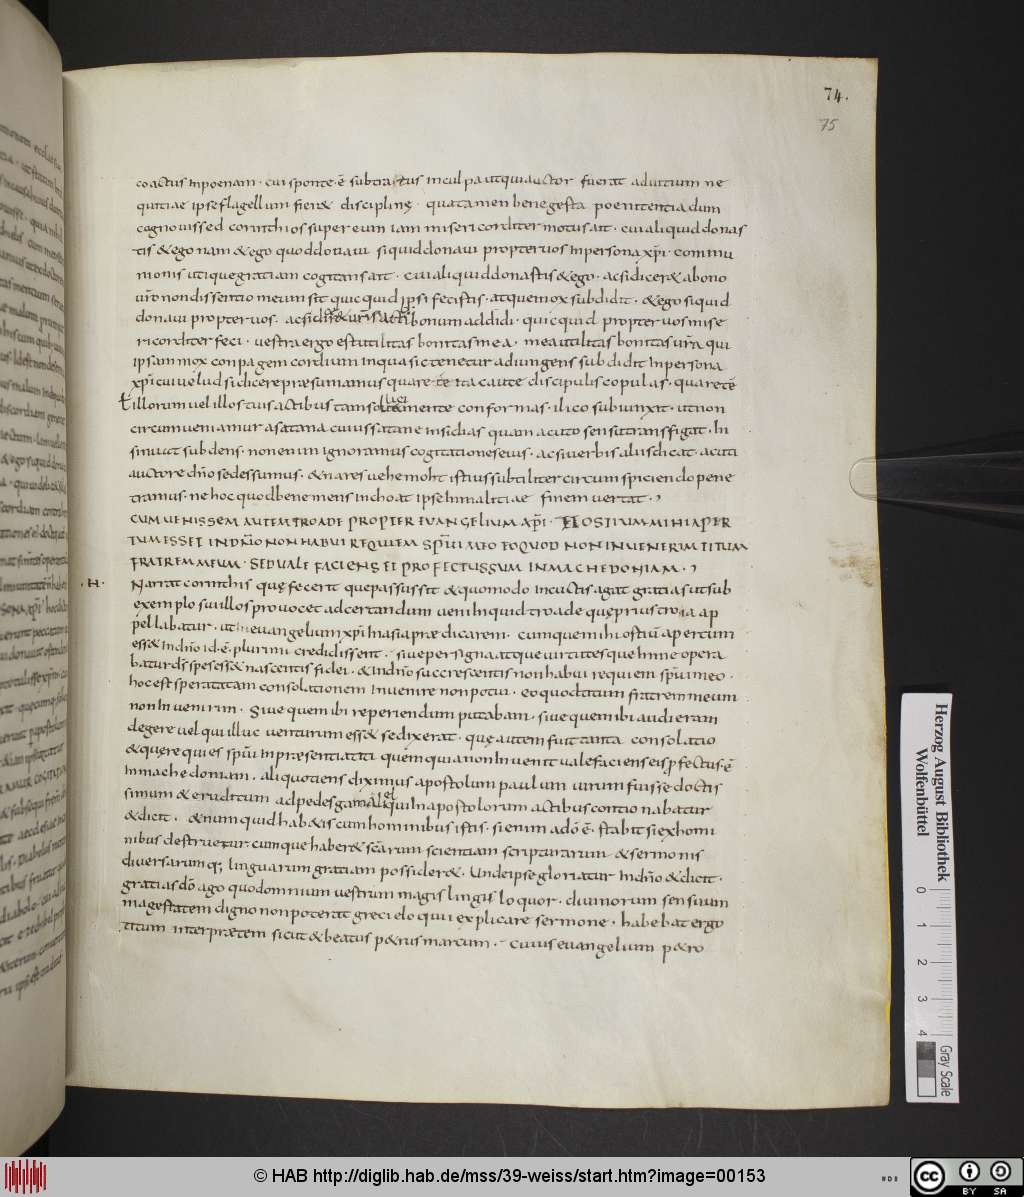 74.
75
coactus inpoenam · cui sponte · ē subtractus inculpa ut qui auctor fuerat aduitium ne
quitiae ipse flagellum fier& disciplinę · qua tamen bene gesta poenitentia dum
cognouissed corinthios super eum iam misericorditer motus ait · cui aliquid donas
tis & ego nam & ego quod donaui siquid donaui propter uos inpersona xp̄i · commu
monis utique gratiam cogitans ait · cui aliquid donastis & ego · acsi dicer& abono
ur̄o non dissentio meum sit quicquid ipsi fecistis · atque mox subdidit · & ego siquid
donaui propter uos · acsi bonum addidi · quicquid propter uos mise
ricorditer feci · uestra ergo est utilitas bonitas mea · mea utilitas bonitas ur̄a qui
ipsam mox conpagem cordium inqua sic tenetur adiungens subdidit inpersona
xp̄i cui uelud si dicere praesumamus quare te ita caute discipulis copulas · quare tē
&illorum uel illos tuis actibus tam sollicita mente conformas · ilico subiunxit · ut non
circumueniamur asatana cuius satane insidias quam acuto sensu transfigat · In
sinuat subdens · non enim ignoramus cogitationes eius · acsi uerbis aliis dicat · acuti
auctore dn̄o sedes sumus · & nares uehemoht istius subtiliter circumspiciendo pene
tramus · ne hoc quod bene mens inchoat ipse inmalitiae finem uertat ·
CUM UENISSEM AUTEM TROADE PROPTER EUANGELIUM XP̄I · ET OSTIUM MIHI APER
TUM ESSET IN DN̄O NON HABUI REQUIEM SPŪI MEO EO QUOD NON INUENERIM TITUM
FRATREM MEUM · SED UALE FACIENS EI PROFECTUS SUM IN MACHEDONIAM ·
· H · Narrat corinthis quę fecerit que passus sit & quomodo incunctis agat gratias ut sub
exemplo sui illos prouocet ad certandum ueni inquid troade quę prius troia ap
pellabatur · ut in euangelium xp̄i Inasia praedicarem · cum que mihi ostiū apertum
ess& Indn̄o id · ē · plurimi credidissent · siue per signa atque uirtutes que hinne opera
batur d̄s spes ess& nascentis fidei · & Indn̄o succrescentis non habui requiem spūi meo ·
hoc est speratam consolationem Inuenire non potui · eo quod titum fratrem meum
non Inuenirim · Siue quem ibi reperiendum putabam · siue quem ibi audieram
degere uel qui illuc uenturum ess& se dixerat · quę autem fuit tanta consolatio
& quęre quies spūi Inpraesentia titi quem quia non Inuenit uale faciens eis pfectus · ē
Inmachedoniam · aliquotiens diximus apostolum paulum uirum fuisse doctis
simum & eruditum ad pedes gamaliel qui Inapostolorum actibus contionabatur
& dicit · & nunc quid hab&is cum hominibus istis · si enim adō ē · stabit si ex homi
nibus destruetur · cumque haber& scārum scientiam scripturarum & sermonis
diuersarumq; linguarum gratiam possider& · Unde ipse gloriatur Indn̄o & dicit ·
gratias dō ago quod omnium uestrum magis linguis loquor · diuinorum sensuum
magestatem digno non poterat greci eloquii explicare sermone · habebat ergo
titum interpraetem sicut & beatus p&rus marcum · cuius euangelium p&ro
Herzog August Bibliothek
Wolfenbüttel
0 1 2 3 4
Gray Scale
© HAB http://diglib.hab.de/mss/39-weiss/start.htm?image=00153
cc BY SA